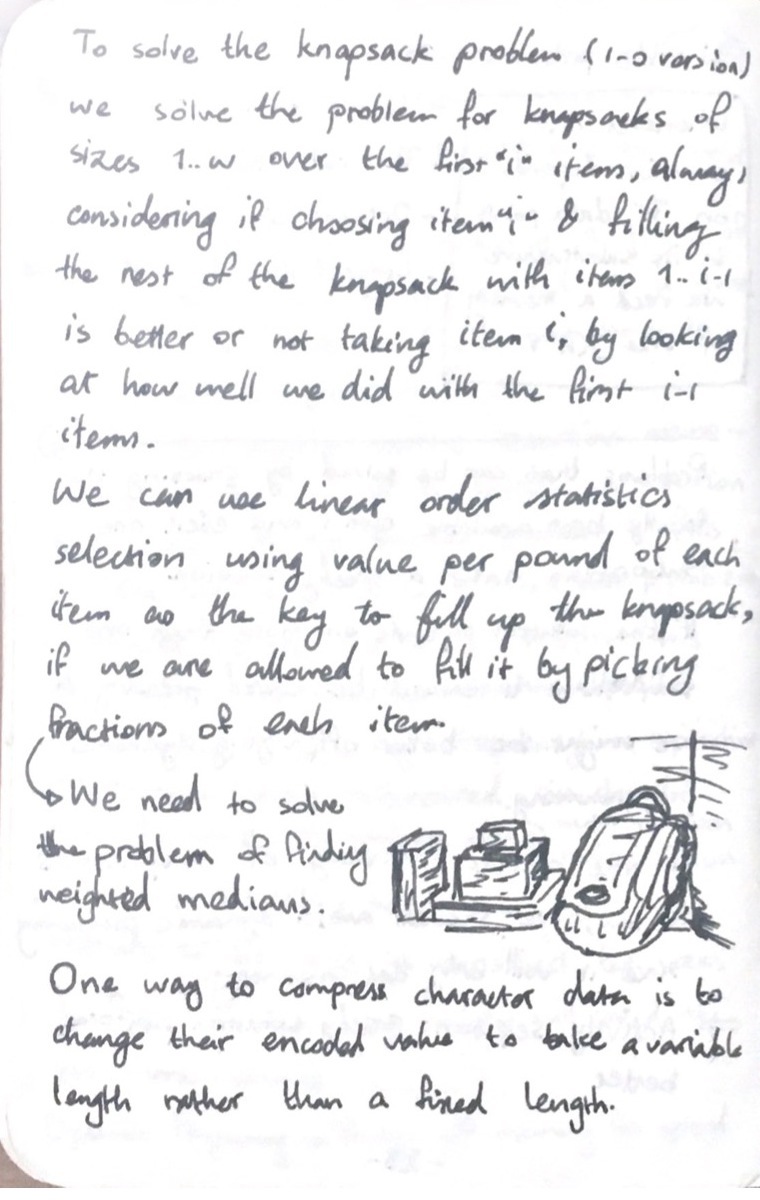 To solve the knapsack problem (1-0 version)
we solve the problem for knapsacks of
sizes 1..w over the first "i" items, always
considering if choosing item "i" & filling
the rest of the knapsack with items 1.. i-1
is better or not taking item i, by looking
at how well we did with the first i-1
items.
We can use linear order statistics
selection using value per pound of each
item as the key to fill up the knapsack,
if we are allowed to fill it by picking
fractions of each item.
We need to solve
the problem of finding
weighted medians.
One way to compress character data is to
change their encoded value to take a variable
length rather than a fixed length.